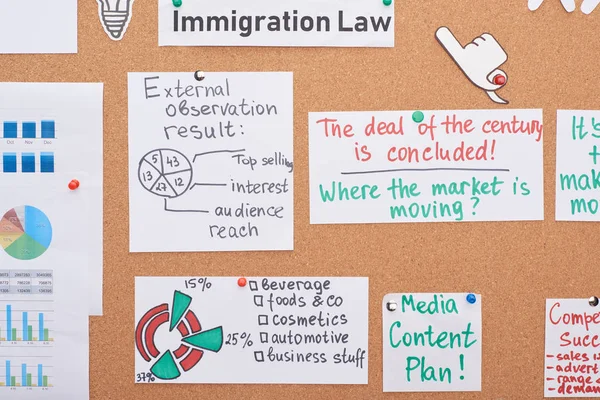 Immigration Law
External
observation
result:
5 43
13 27 12
Top selling
interest
audience
reach
The deal of the century
is concluded!
Where the market is
moving?
It's
mak
mo
Oct Nov Dec
15%
25%
37%
beverage
foods & co
cosmetics
automotive
business stuff
Media
Content
Plan!
Compe
Succ
- sales is
- advert
- range
- deman